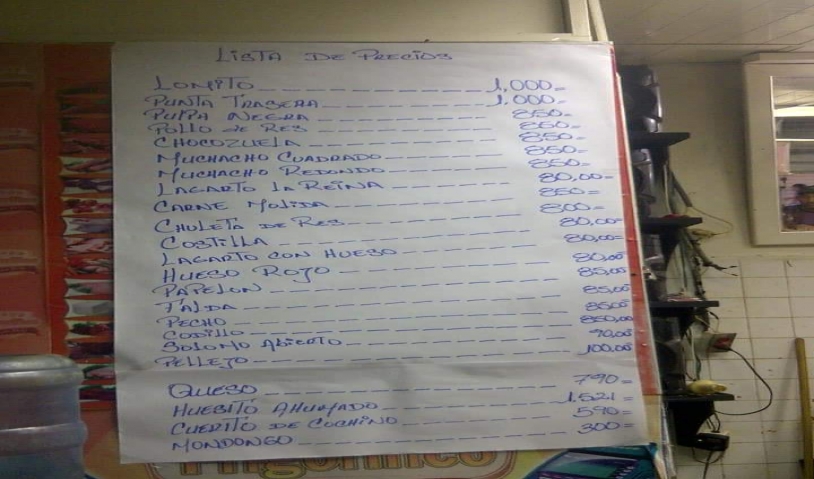 LISTA DE PRECIOS
LOMITO 1,000=
PUNTA TRASERA 1.000=
PULPA NEGRA 850=
POLLO DE RES 850=
CHOCOZUELA 850=
MUCHACHO CUADRADO 850=
MUCHACHO REDONDO 850=
LAGARTO LA REINA 80,00=
CARNE MOLIDA 850=
CHULETA DE RES 800=
COSTILLA 80,00=
LAGARTO CON HUESO 80,00=
HUESO ROJO 80,00
PAPELON 85,00
FALDA 85,00
PECHO 8500
CODILLO 850,00
SOLOMO ABIERTO 90,00
PELLEJO 100,00
QUESO 790=
HUESITO AHUMADO 1.521=
CUERITO DE COCHINO 590=
MONDONGO 300=
Frigorífico